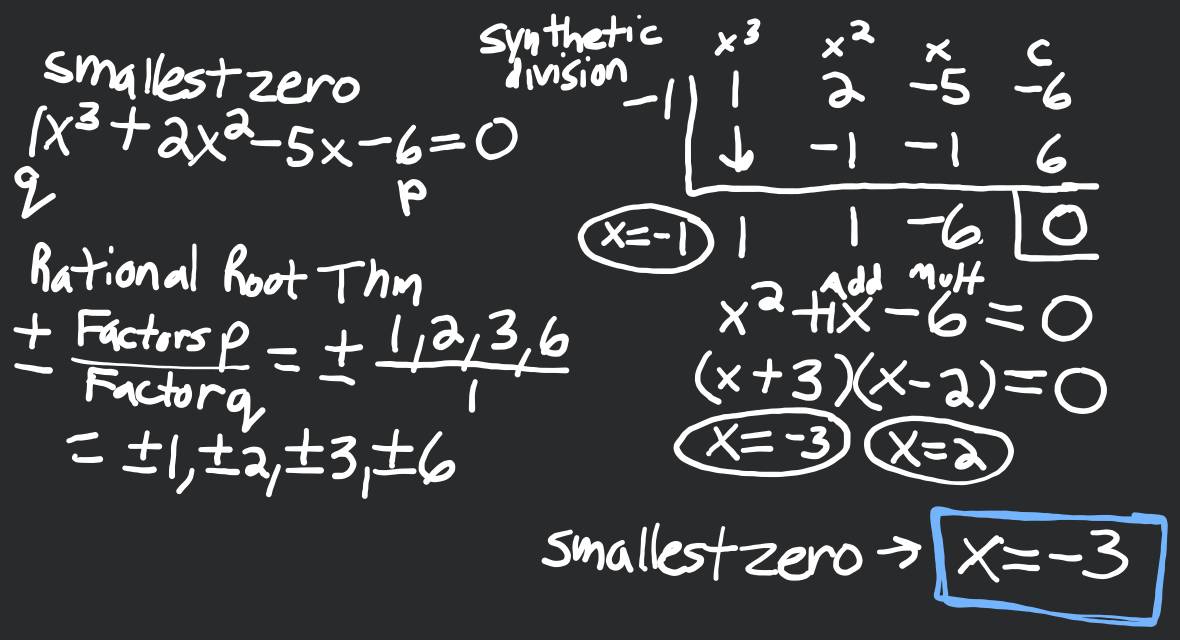 smallest zero
1x³ + 2x² - 5x - 6 = 0
q p
Rational Root Thm
± Factors p / Factor q = ± 1, 2, 3, 6 / 1
= ±1, ±2, ±3, ±6
synthetic
division
x³ x² x c
-1 | 1 2 -5 -6
↓ -1 -1 6
x=-1 1 1 -6 0
Add Mult
x² + 1x - 6 = 0
(x+3)(x-2)=0
x=-3 x=2
smallest zero → x=-3